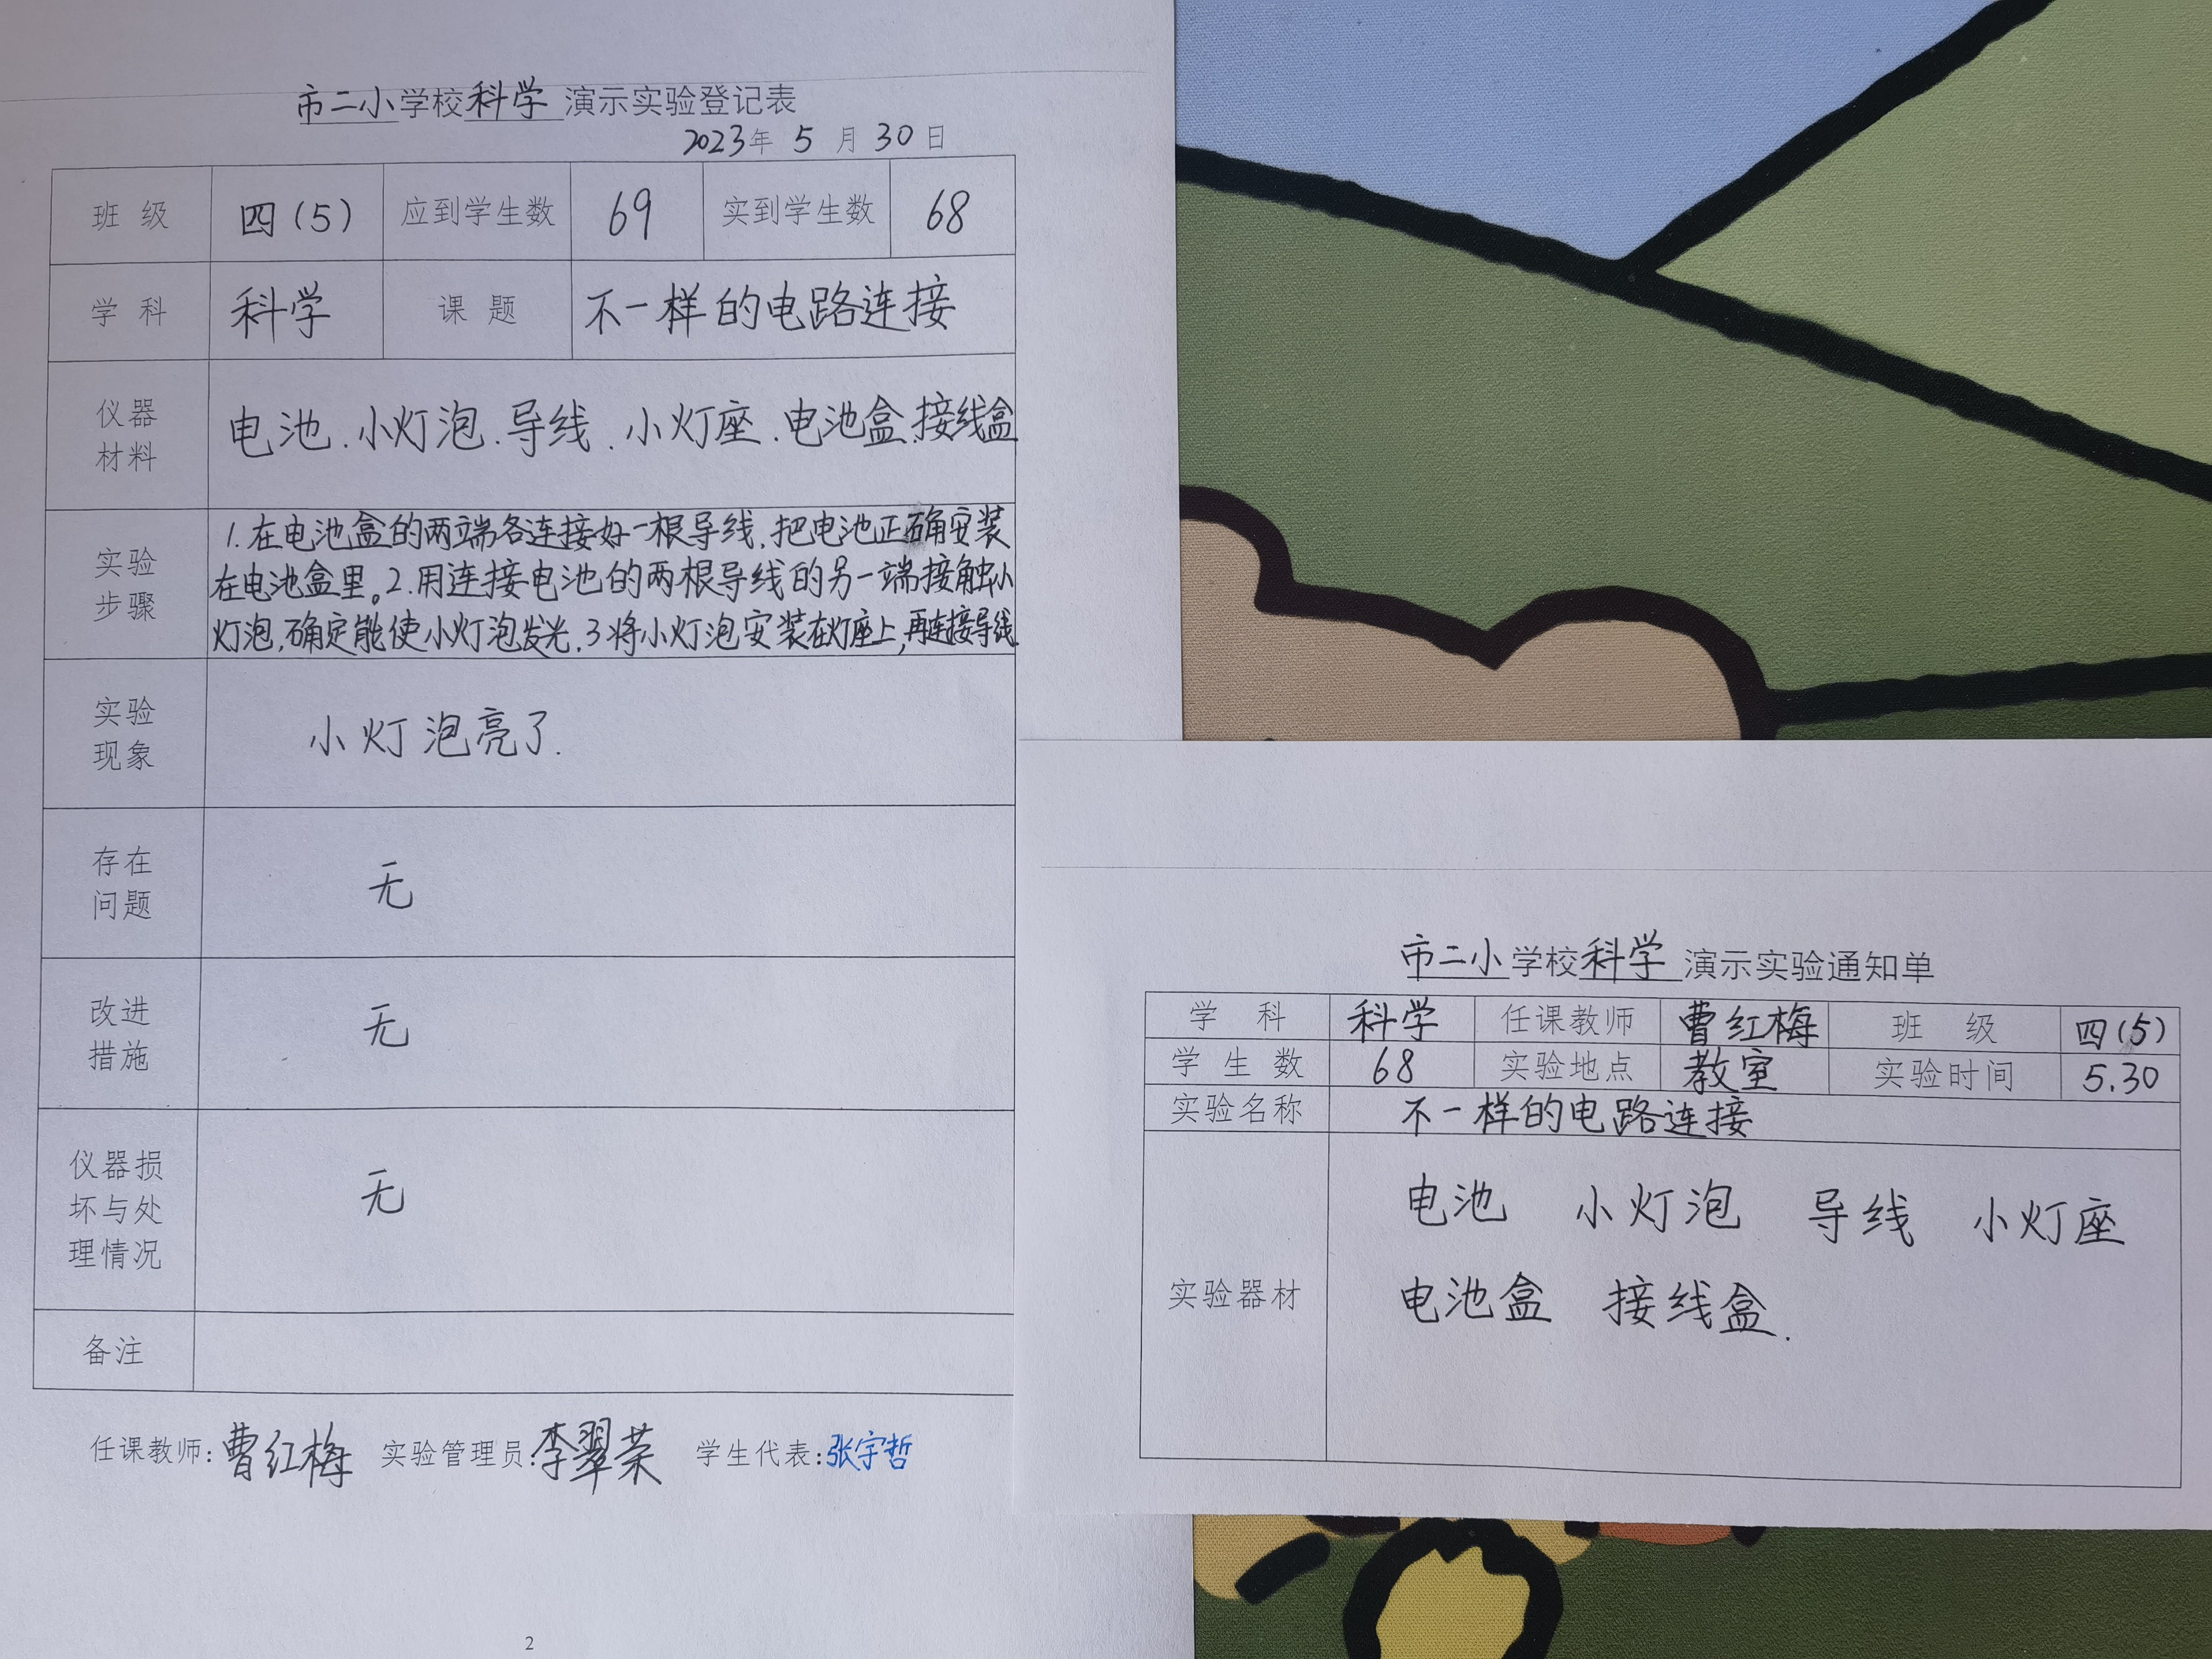 市二小学校科学 演示实验登记表
2023年 5 月 30 日
班 级 四(5) 应到学生数 69 实到学生数 68
学 科 科学 课 题 不一样的电路连接
仪器材料 电池.小灯泡.导线.小灯座.电池盒.接线盒
实验步骤 1.在电池盒的两端各连接好一根导线.把电池正确安装
在电池盒里。2.用连接电池的两根导线的另一端接触小
灯泡.确定能使小灯泡发光.3将小灯泡安装在灯座上,再连接导线
实验现象 小灯泡亮了.
存在问题 无
改进措施 无
仪器损坏与处理情况 无
备注
任课教师:曹红梅 实验管理员:李翠荣 学生代表:张宇哲
2
市二小学校科学 演示实验通知单
学 科 科学 任课教师 曹红梅 班 级 四(5)
学 生 数 68 实验地点 教室 实验时间 5.30
实验名称 不一样的电路连接
实验器材 电池 小灯泡 导线 小灯座
电池盒 接线盒.